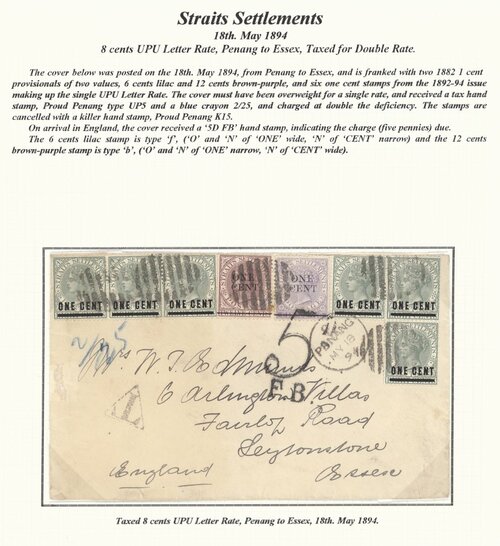 Straits Settlements
18th. May 1894
8 cents UPU Letter Rate, Penang to Essex, Taxed for Double Rate.
The cover below was posted on the 18th. May 1894, from Penang to Essex, and is franked with two 1882 1 cent
provisionals of two values, 6 cents lilac and 12 cents brown-purple, and six one cent stamps from the 1892-94 issue
making up the single UPU Letter Rate. The cover must have been overweight for a single rate, and received a tax hand
stamp, Proud Penang type UP5 and a blue crayon 2/25, and charged at double the deficiency. The stamps are
cancelled with a killer hand stamp, Proud Penang K15.
On arrival in England, the cover received a ‘5D FB’ hand stamp, indicating the charge (five pennies) due.
The 6 cents lilac stamp is type ‘f’, (‘O’ and ‘N’ of ‘ONE’ wide, ‘N’ of ‘CENT’ narrow) and the 12 cents
brown-purple stamp is type ‘b’, (‘O’ and ‘N’ of ‘ONE’ narrow, ‘N’ of ‘CENT’ wide).
ONE CENT
ONE CENT
ONE CENT
ONE
CENT
ONE
CENT
ONE CENT
ONE CENT
ONE CENT
5D
F.B.
PENANG
MY 18
94
T
Mrs W. T. Edmunds
6 Arlington Villas
Fairlop Road
Leytonstone
England
Essex
Taxed 8 cents UPU Letter Rate, Penang to Essex, 18th. May 1894.